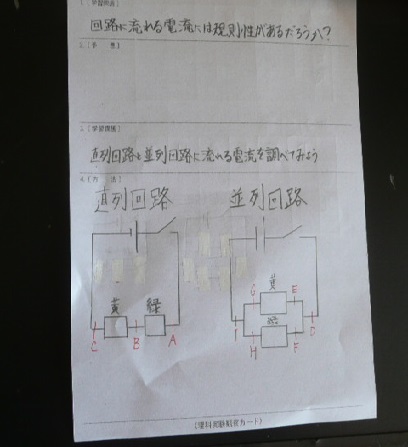 1.[学習問題]
回路に流れる電流には規則性があるだろうか?
2.[予 想]
3.[学習課題]
直列回路と並列回路に流れる電流を調べてみよう
4.[方 法]
直列回路 並列回路
黄 緑
C B A
黄
G E
I D
緑
H F
(理科実験観察カード)